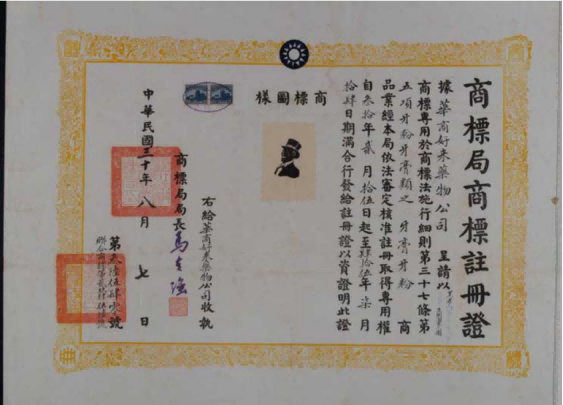 商標局商標註冊證
據華商好來藥物公司呈請以
商標專用於商標法施行細則第三十七條第
五項牙粉牙膏類之牙膏牙粉商
品業經本局依法審定核准註冊取得專用權
自叁拾年貳月拾伍日起至
年柒月
拾肆日期滿合行發給註冊證以資證明此證
商標圖樣
右給華商好來藥物公司收執
商標局局長
中華民國三十年八月七日